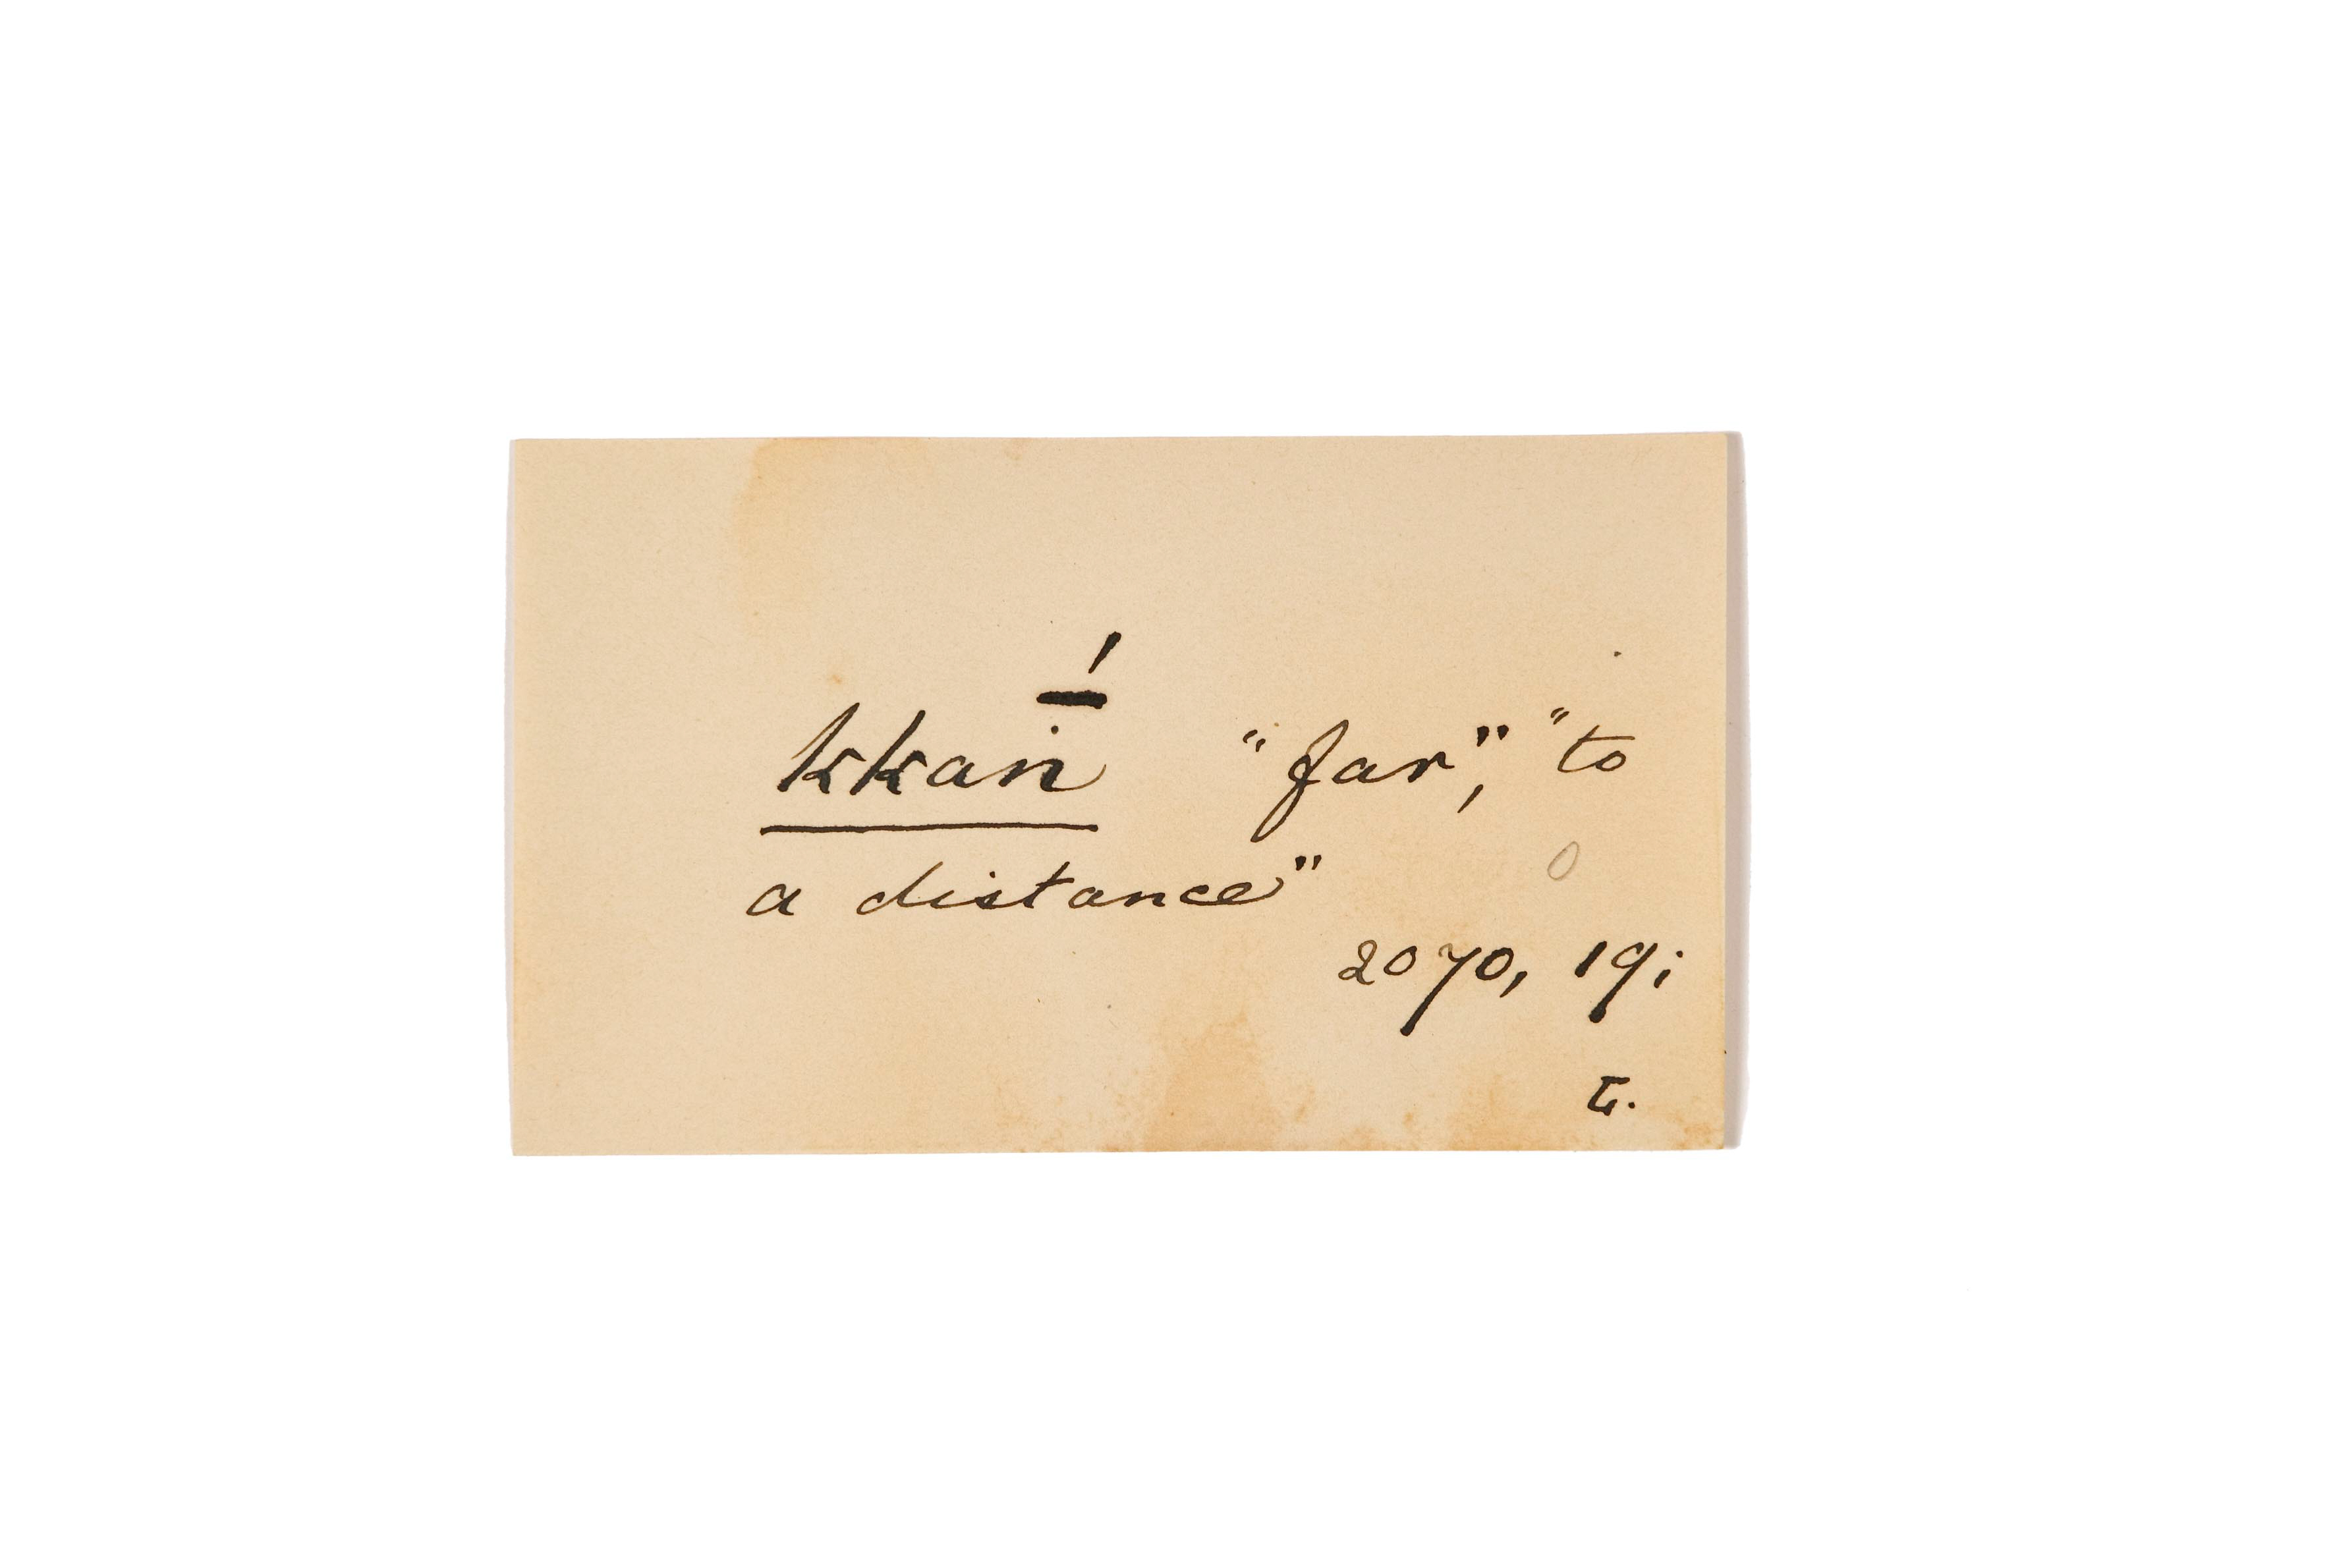 kkā́ṅ "far", "to
a distance"
2070, 19;